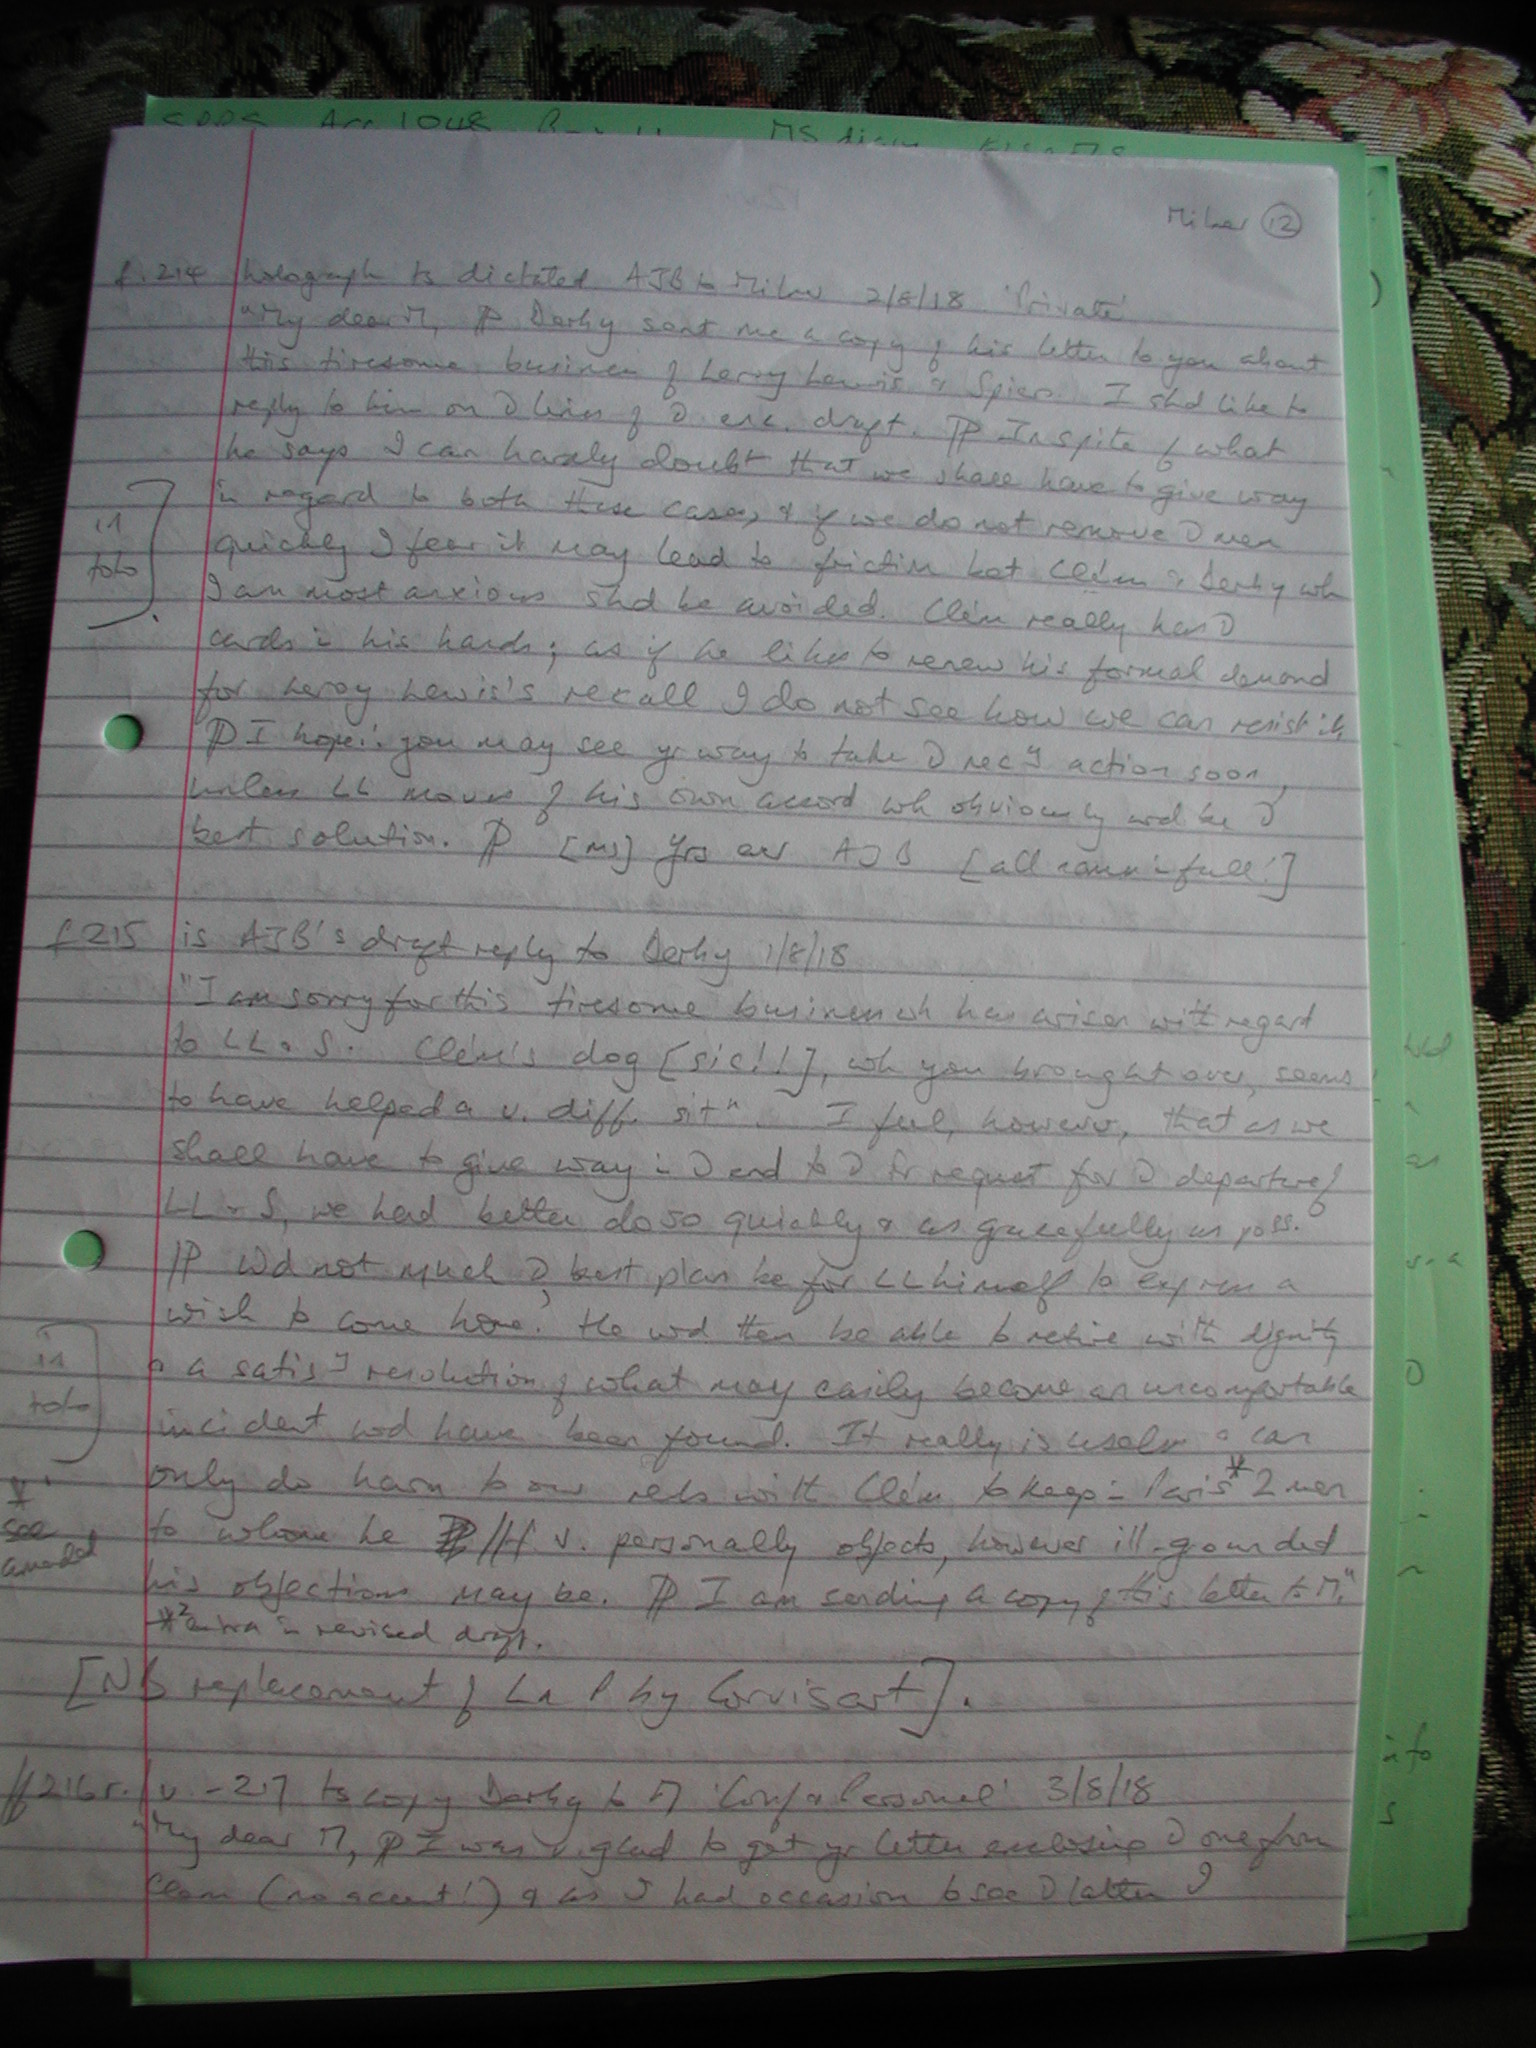 SPPS Acc 1048 MS
Milner 12
f. 214 holograph ts dictated AJB to Milner 2/8/18 'Private'
"My dear M, P Derby sent me a copy of his letter to you about
this tiresome business of Leroy Lewis & Spiers. I shd like to
reply to him on D lines of D enc. draft. P In spite of what
he says I can hardly doubt that we shall have to give way
in regard to both these cases, & if we do not remove D men
quickly I fear it may lead to friction bet Clém & Derby wh
I am most anxious shd be avoided. Clém really has D
cards in his hands; as if he likes to renew his formal demand
for Leroy Lewis's recall I do not see how we can resist it.
P I hope ∴ you may see yr way to take D recy action soon,
unless LL moves of his own accord wh obviously wd be D
best solution. P [ms] Yrs ever AJB [all names in full!]
in
toto
f 215 is AJB's draft reply to Derby 1/8/18
"I am sorry for this tiresome business wh has arisen with regard
to LL & S. Clém's dog [sic!!], wh you brought over, seems
to have helped a v. diff. sitn. I feel, however, that as we
shall have to give way in D end to D Fr request for D departure of
LL & S, we had better do so quickly & as gracefully as poss.
P Wd not much D best plan be for LL himself to express a
wish to come home? He wd then be able to retire with dignity
& a satisy resolution of what may easily become an uncomfortable
incident wd have been found. It really is useless & can
only do harm to our rels with Clém to keep in Paris * 2 men
to whom he v. personally objects, however ill-grounded
his objections may be. P I am sending a copy of this letter to M."
*2 extra in revised draft.
in
toto
*
see
amended
[NB replacement of La P by Corvisart].
ff 216r./v. - 217 ts copy Derby to M 'Conf & Personal' 3/8/18
"My dear M, P I was v. glad to get yr letter enclosing D one from
Clem (no accent!) & as I had occasion to see D latter I
info